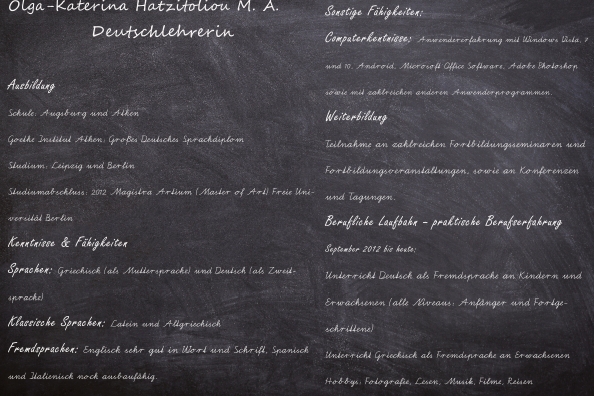 Olga-Katerina Hatzitoliou M. A.
Deutschlehrerin
Ausbildung
Schule: Augsburg und Athen
Goethe Institut Athen: Großes Deutsches Sprachdiplom
Studium: Leipzig und Berlin
Studiumabschluss: 2012 Magistra Artium (Master of Art) Freie Uni-
versität Berlin
Kenntnisse & Fähigkeiten
Sprachen: Griechisch (als Muttersprache) und Deutsch (als Zweit-
sprache)
Klassische Sprachen: Latein und Altgriechisch
Fremdsprachen: Englisch sehr gut in Wort und Schrift, Spanisch
und Italienisch noch ausbaufähig.
Sonstige Fähigkeiten:
Computerkentnisse: Anwendererfahrung mit Windows Vista, 7
und 10, Android, Microsoft Office Software, Adobe Photoshop
sowie mit zahlreichen anderen Anwenderprogrammen.
Weiterbildung
Teilnahme an zahlreichen Fortbildungsseminaren und
Fortbildungsveranstaltungen, sowie an Konferenzen
und Tagungen.
Berufliche Laufbahn – praktische Berufserfahrung
September 2012 bis heute:
Unterricht Deutsch als Fremdsprache an Kindern und
Erwachsenen (alle Niveaus: Anfänger und Fortge-
schrittene)
Unterricht Griechisch als Fremdsprache an Erwachsenen
Hobbys: Fotografie, Lesen, Musik, Filme, Reisen